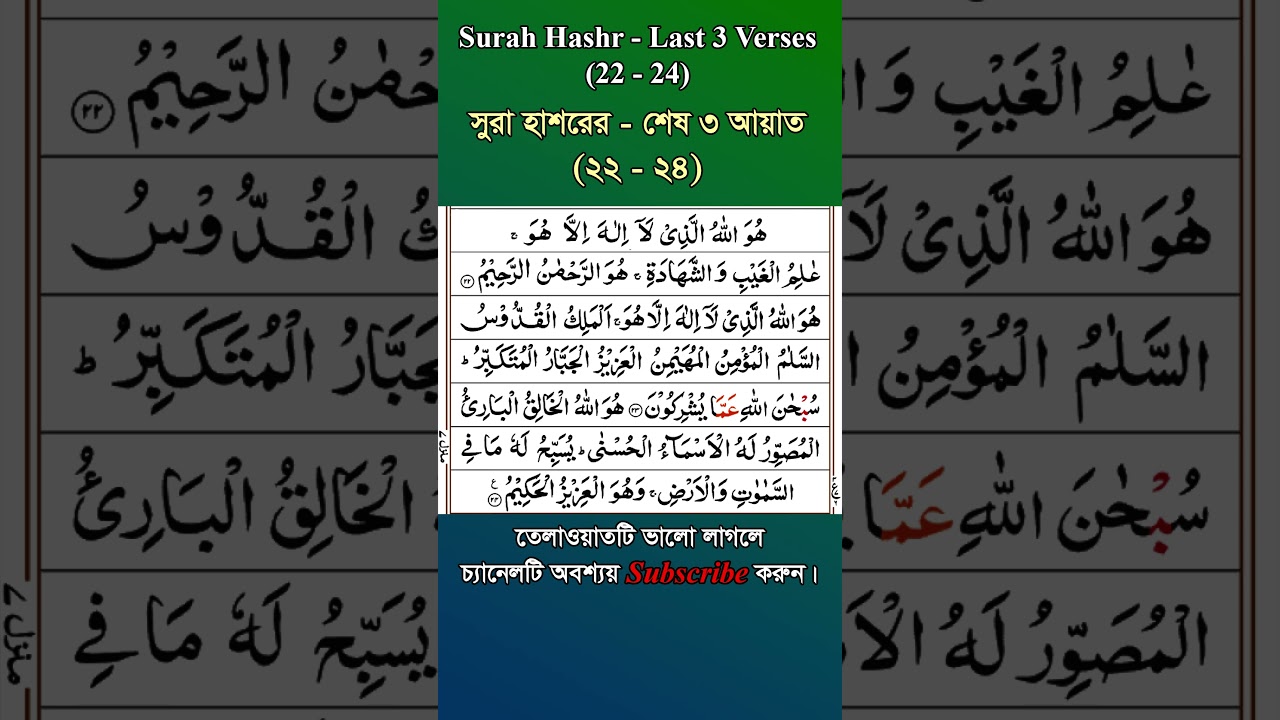 Surah Hashr - Last 3 Verses
(22 - 24)
সুরা হাশরের - শেষ ৩ আয়াত
(২২ - ২৪)
هُوَ اللّٰهُ الَّذِیْ لَاۤ اِلٰهَ اِلَّا هُوَ ۚ
عٰلِمُ الْغَیْبِ وَ الشَّهَادَةِ ۚ هُوَ الرَّحْمٰنُ الرَّحِیْمُ ۝۲۲
هُوَ اللّٰهُ الَّذِیْ لَاۤ اِلٰهَ اِلَّا هُوَ ۚ اَلْمَلِكُ الْقُدُّوْسُ
السَّلٰمُ الْمُؤْمِنُ الْمُهَیْمِنُ الْعَزِیْزُ الْجَبَّارُ الْمُتَكَبِّرُ ؕ
سُبْحٰنَ اللّٰهِ عَمَّا یُشْرِكُوْنَ ۝۲۳ هُوَ اللّٰهُ الْخَالِقُ الْبَارِئُ
الْمُصَوِّرُ لَهُ الْاَسْمَآءُ الْحُسْنٰی ؕ یُسَبِّحُ لَهٗ مَا فِی
السَّمٰوٰتِ وَ الْاَرْضِ ۚ وَ هُوَ الْعَزِیْزُ الْحَكِیْمُ ۝۲۴
তেলাওয়াতটি ভালো লাগলে
চ্যানেলটি অবশ্যয় Subscribe করুন।